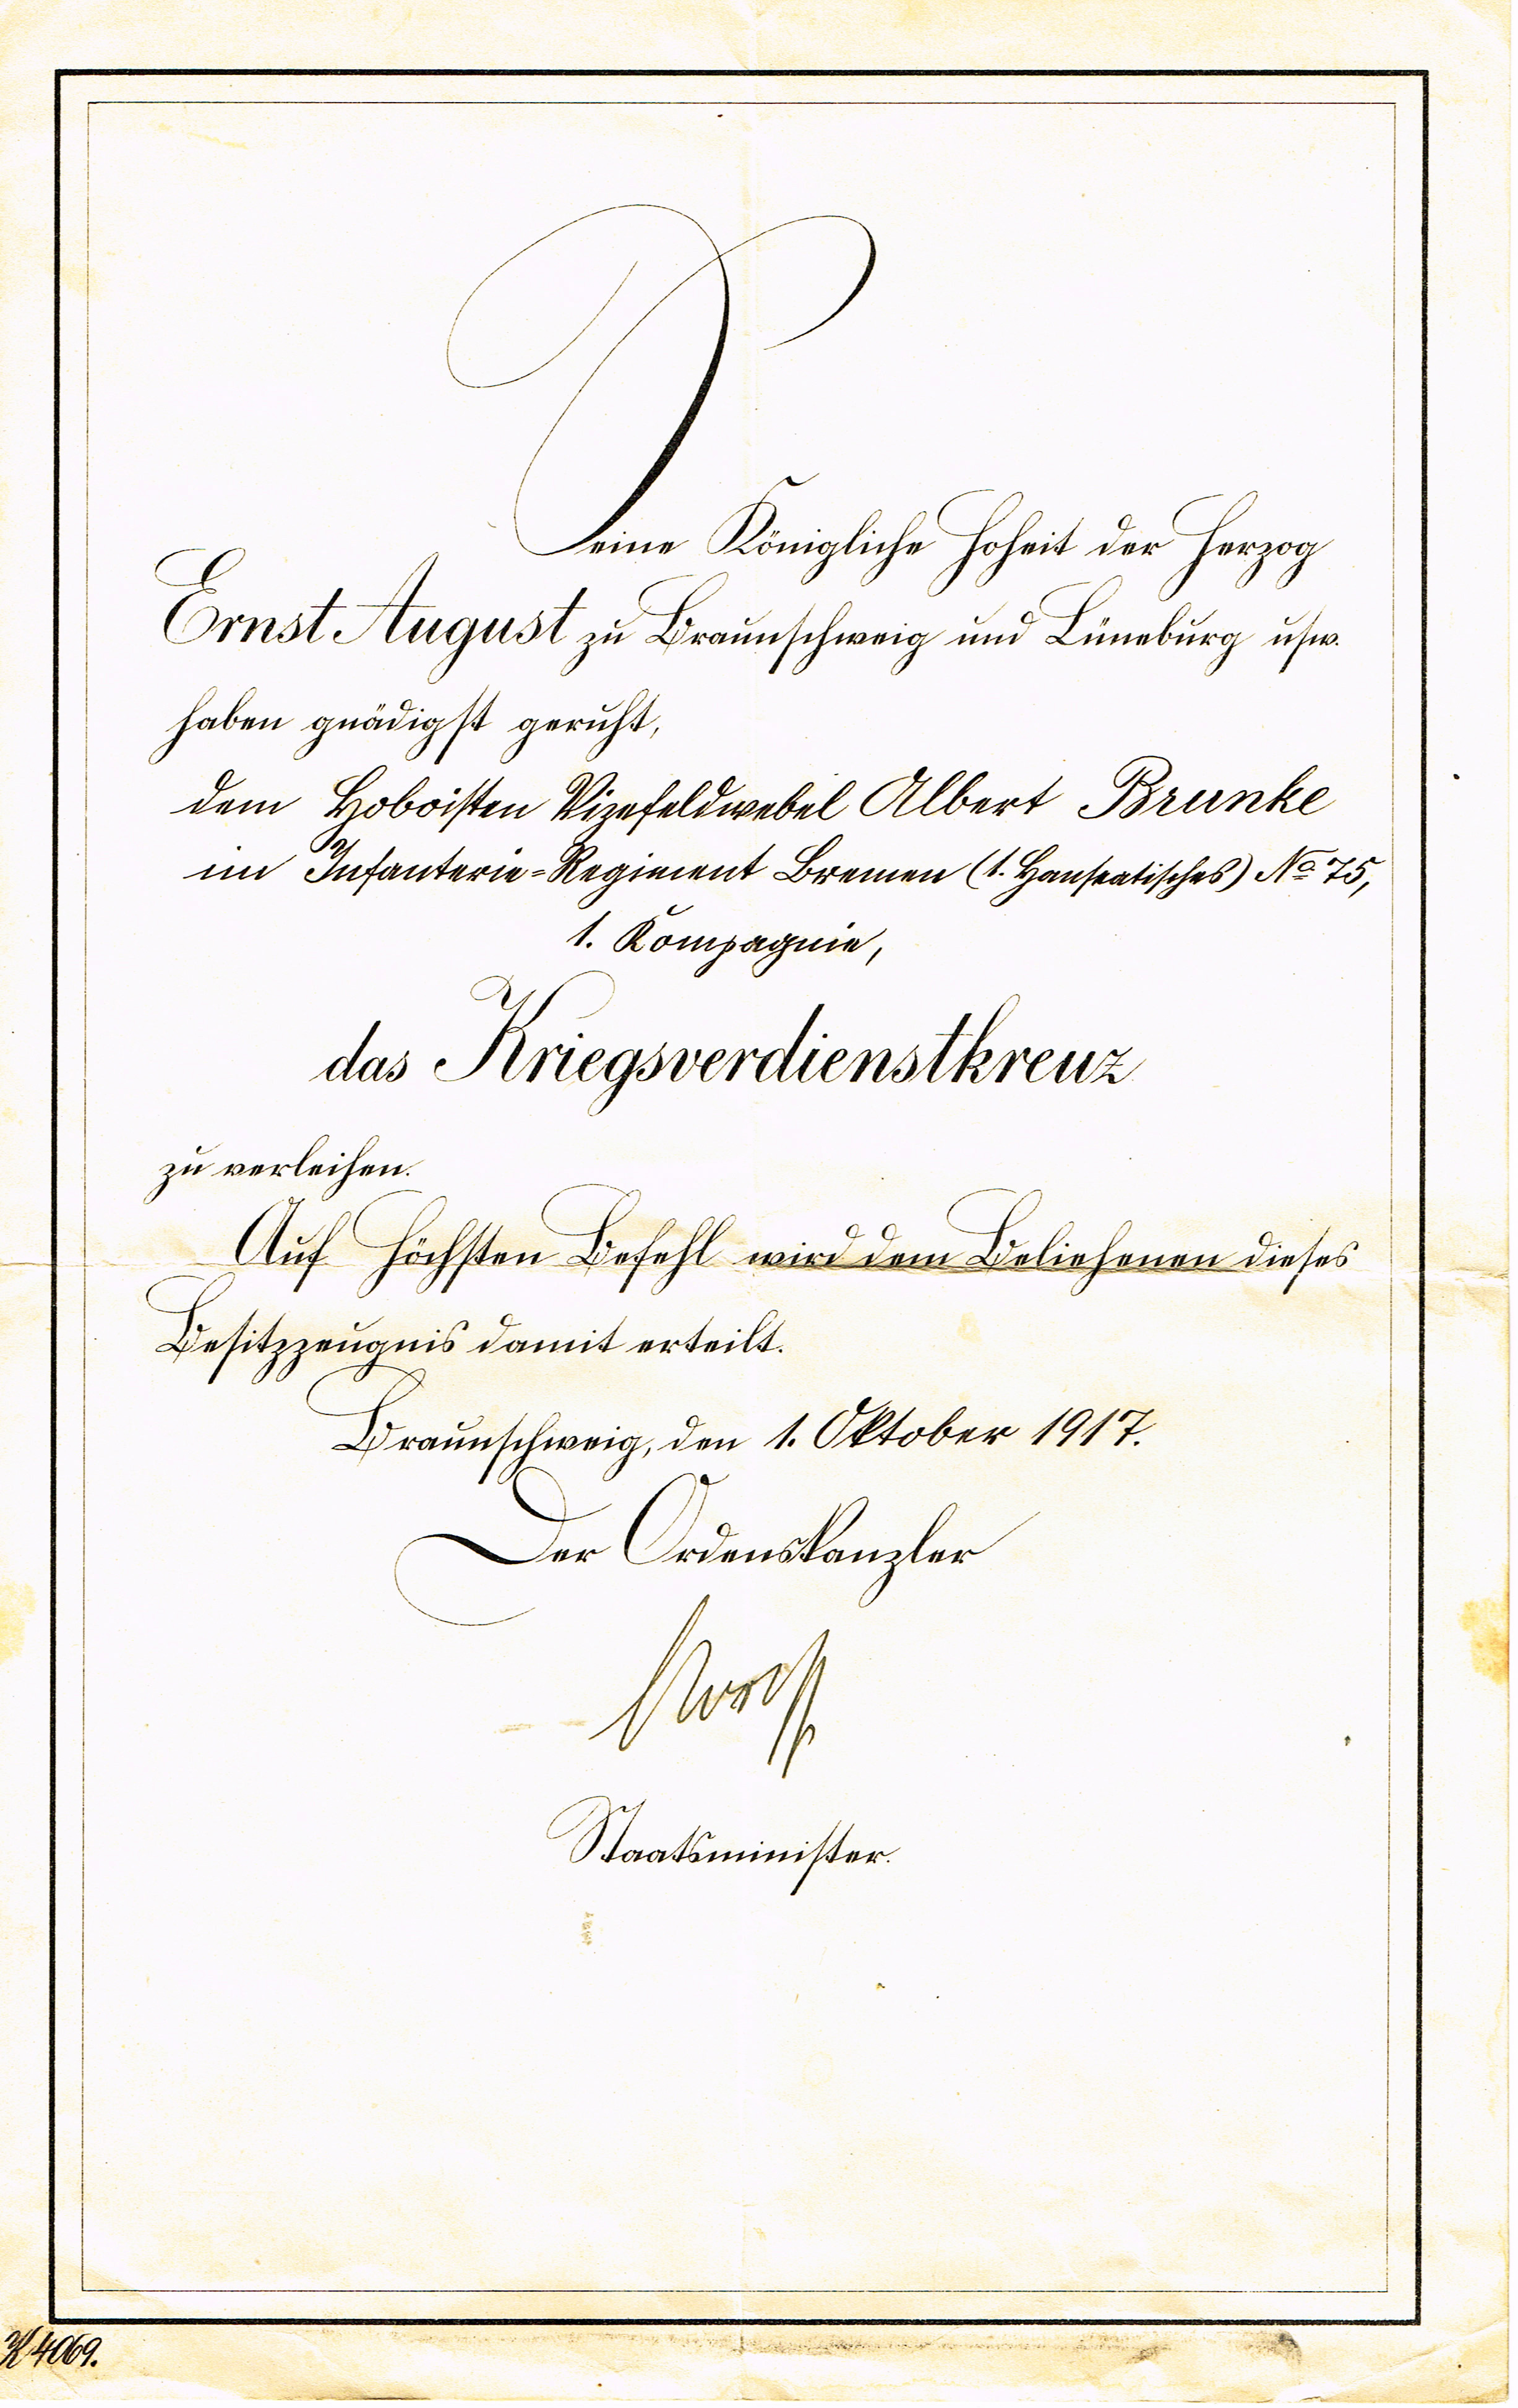 Seine Königliche Hoheit der Herzog
Ernst August zu Braunschweig und Lüneburg usw.
haben gnädigst geruht,
dem Hoboisten Vizefeldwebel Albert Brunke
im Infanterie-Regiment Bremen (1. Hanseatisches) No 75,
1. Kompagnie,
das Kriegsverdienstkreuz
zu verleihen.
Auf Höchsten Befehl wird dem Beliehenen dieses
Besitzzeugnis damit erteilt.
Braunschweig, den 1. Oktober 1917.
Der Ordenskanzler
Staatsminister.
K 4069.